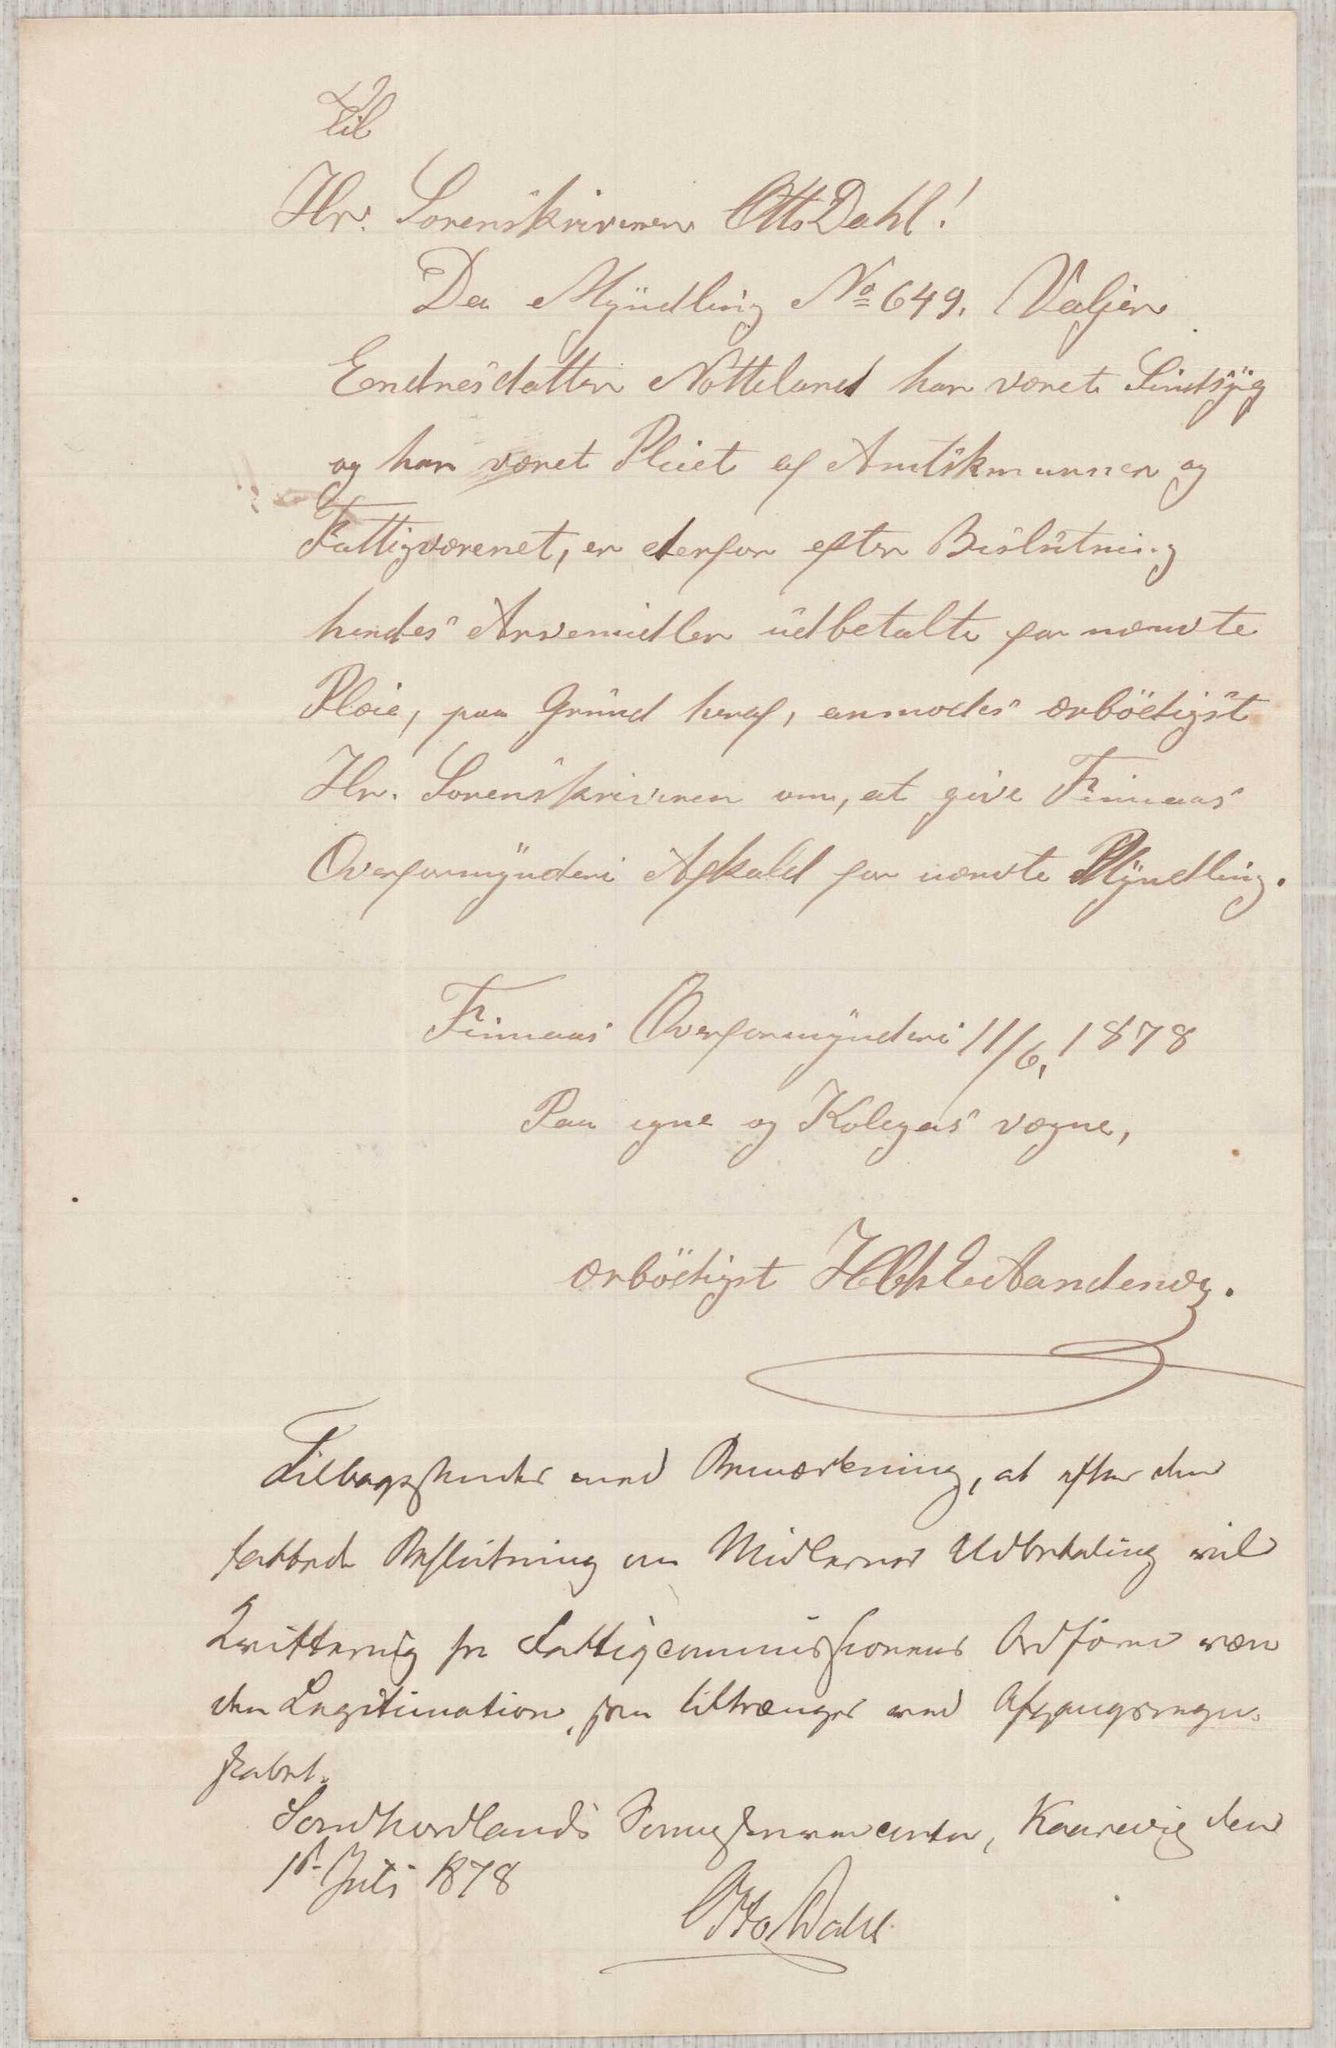 Til
Hr. Sorenskriveren Otto Dahl!
Da Myndling No 649. Valjer
Endresdatter Notteland har været Sindsyg
og har været Pleiet af Amtskmunnen og
Fattigværenet, er derfor efter Beslutning
hendes Arvemidler udbetalte for nævnte
Pleie, paa Grund heraf, anmodes ærbödigst
Hr. Sorenskriveren om, at give Finnaas
Overformynderi Afkald for nævnte Myndling.
Finnaas Overformynderi 11/6, 1878
Paa egne og Kolegas vægne,
ærbödigst H Aandenæs.
Tilbagesendes med Bemærkning, at efter den
fattede Beslutning om Midlernes Udbetaling vil
Qvittering fra Fattigcommissionens Ordförer være
den Legitimation, som tiltrænges ved Afgangsregn-
skabet.
Søndhordlands Sorenskrivercontor, Kaarevig den
1st Juli 1878
Otto Dahl